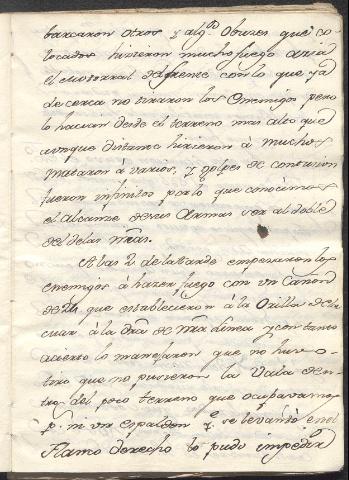 barcaron otros y algs Obuzes que co-
locados hicieron mucho fuego acia
el Matorral del frente con lo que ya
de cerca no tiraron los Enemigos pero
lo hacian desde el terreno mas alto que
aunque distante hirieron à muchos
mataron à varios, y golpes de contusion
fueron infinitos por lo que conocimos
el Alcanze de sus Armas ser al doble
del de las nras.
A las 2 de la tarde empezaron los
enemigos à hazer fuego con un Cañon
de 24 que establecieron à la Orilla del
à la dra de nra Linea y con tanto
acierto lo manejaron que no huvo
tiro que no pusieron la Vala den-
tro del poco terreno que ocupavamos
ni un espaldon qe se levantó en el
Flanco derecho lo pudo impedir